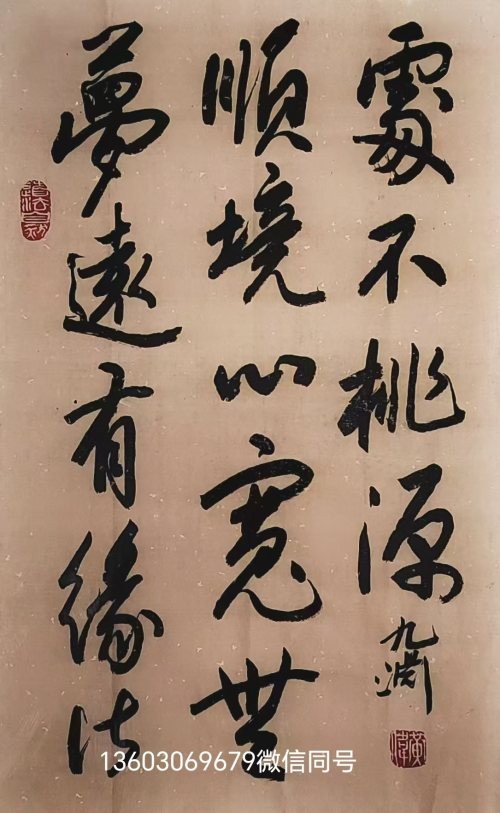 夢遠有緣
順境心寬無
處不桃源
九
道法自然
13603069679微信同号